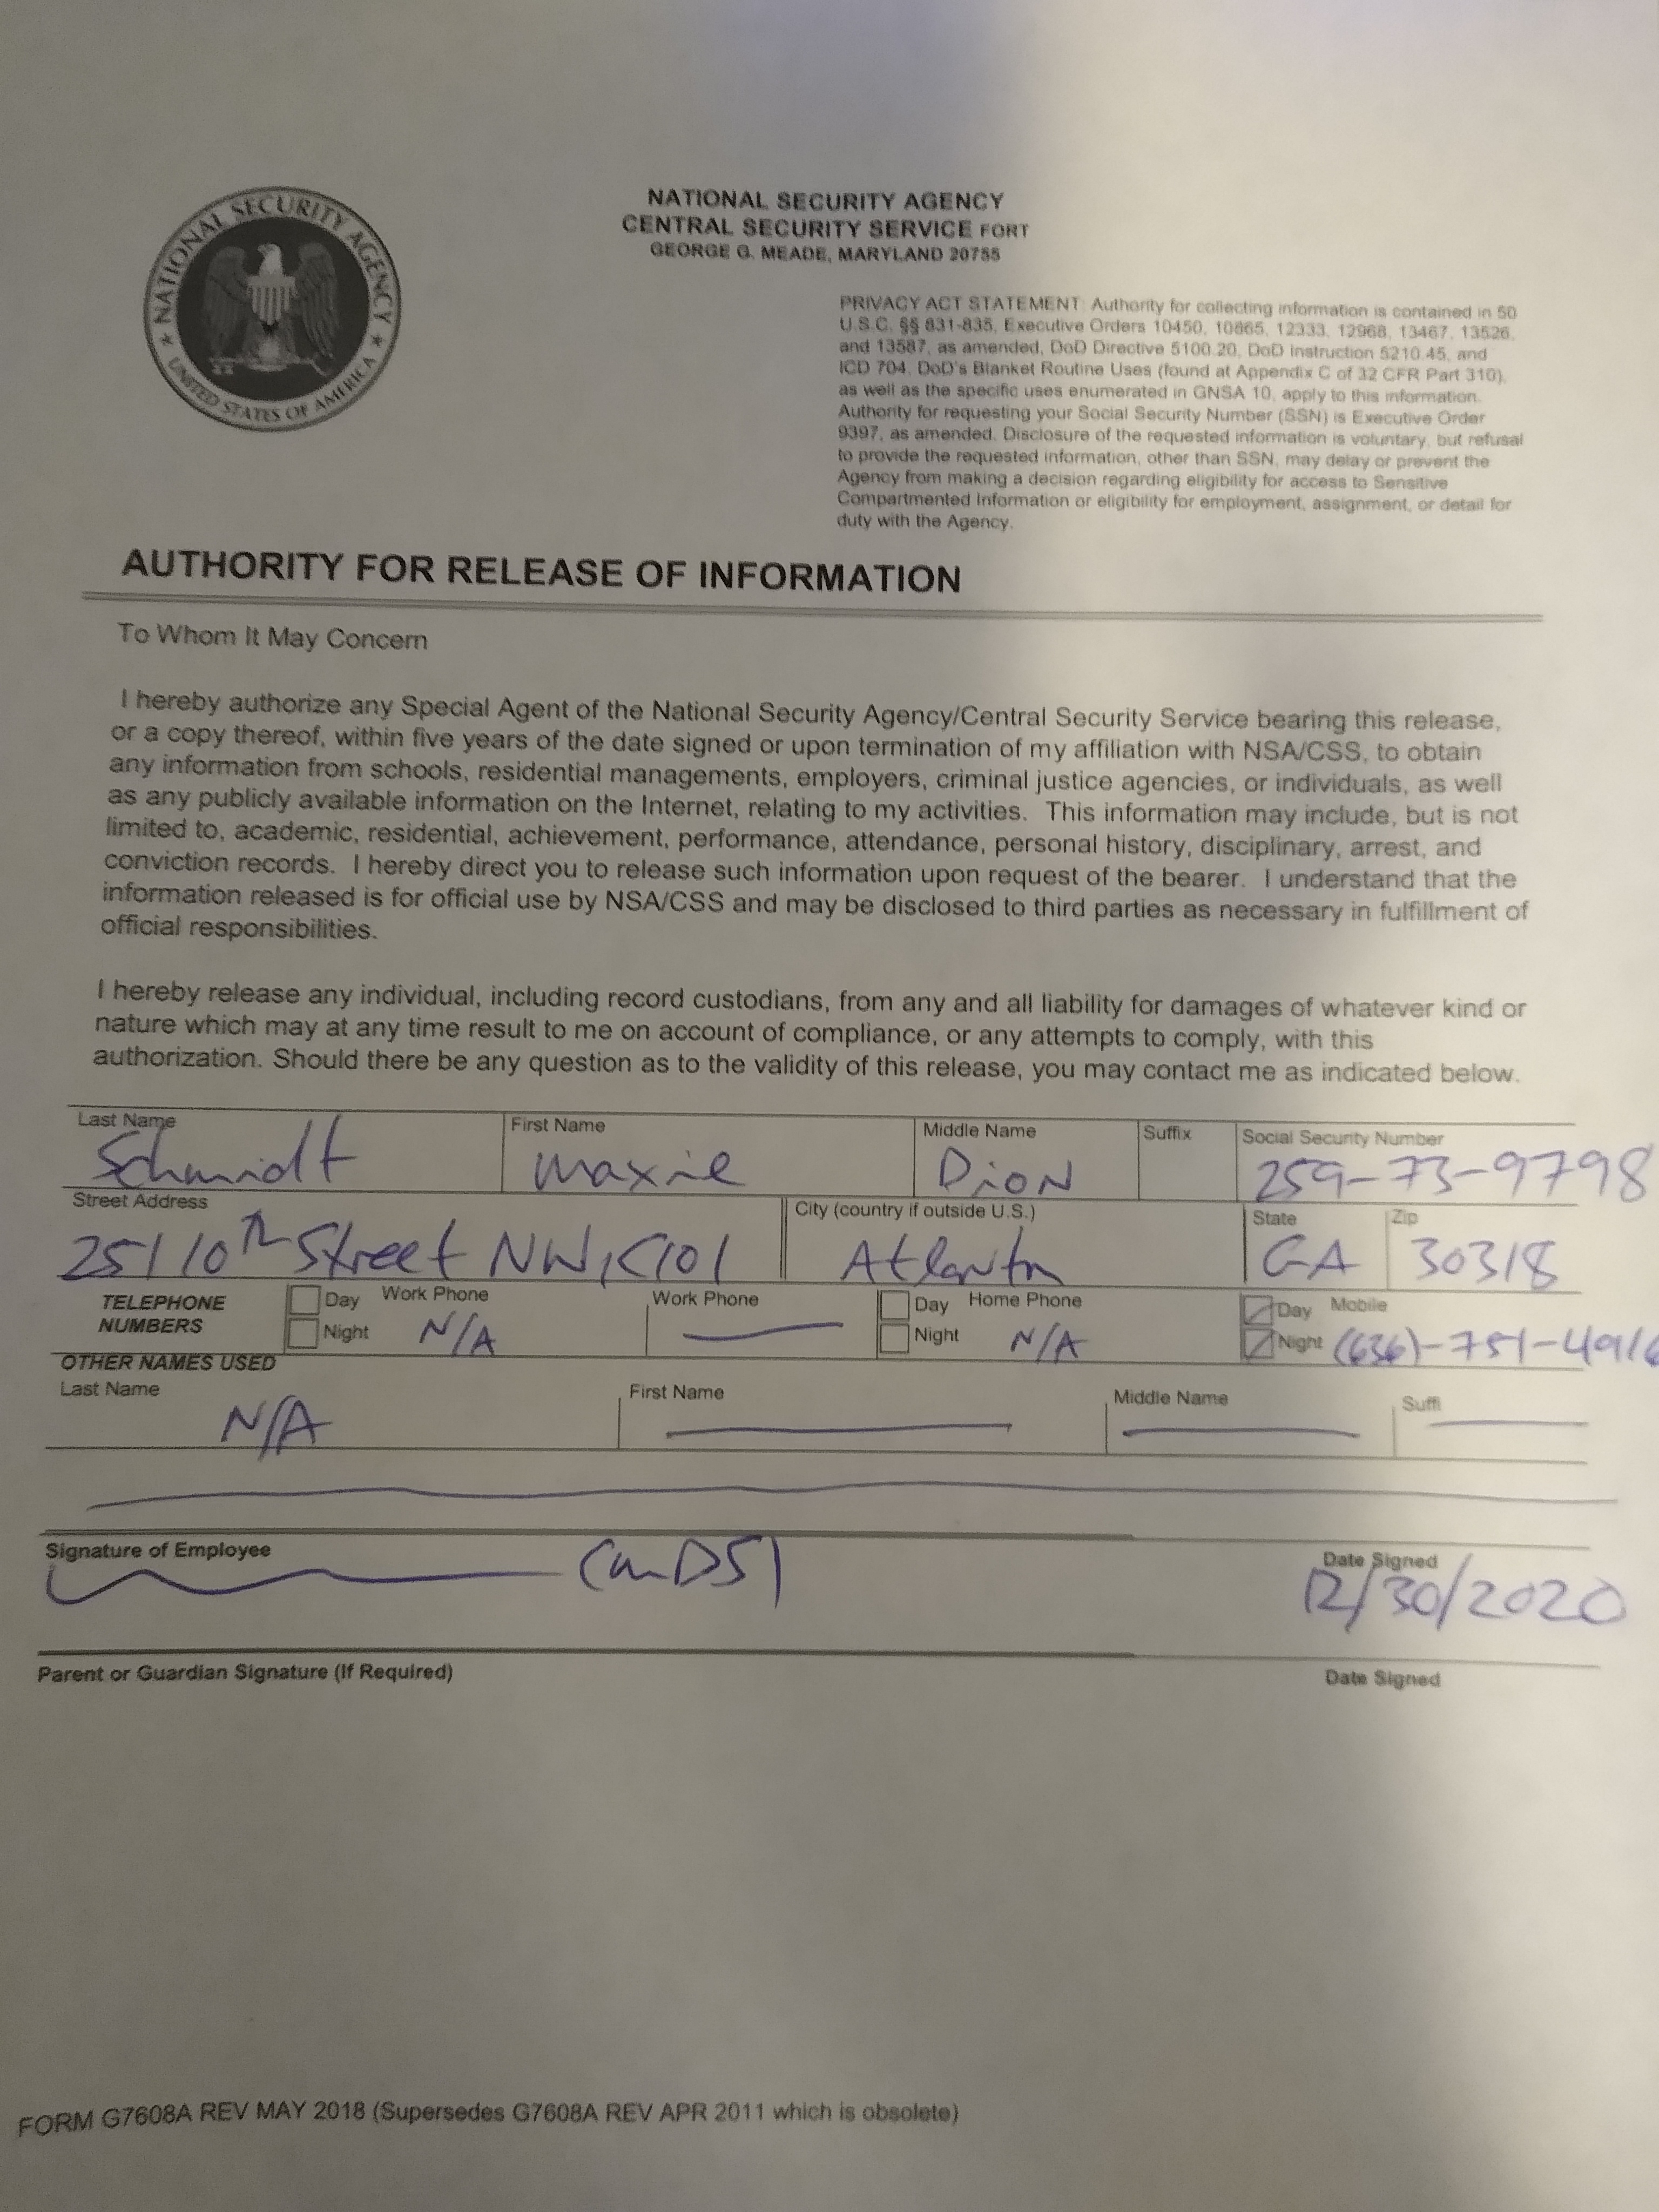 NATIONAL SECURITY AGENCY
CENTRAL SECURITY SERVICE FORT
GEORGE G. MEADE, MARYLAND 20755
NATIONAL SECURITY AGENCY
UNITED STATES OF AMERICA
PRIVACY ACT STATEMENT: Authority for collecting information is contained in 50
U.S.C. §§ 831-835, Executive Orders 10450, 10865, 12333, 12968, 13467, 13526,
and 13587, as amended, DoD Directive 5100.20, DoD Instruction 5210.45, and
ICD 704. DoD's Blanket Routine Uses (found at Appendix C of 32 CFR Part 310),
as well as the specific uses enumerated in GNSA 10, apply to this information.
Authority for requesting your Social Security Number (SSN) is Executive Order
9397, as amended. Disclosure of the requested information is voluntary, but refusal
to provide the requested information, other than SSN, may delay or prevent the
Agency from making a decision regarding eligibility for access to Sensitive
Compartmented Information or eligibility for employment, assignment, or detail for
duty with the Agency.
AUTHORITY FOR RELEASE OF INFORMATION
To Whom It May Concern
I hereby authorize any Special Agent of the National Security Agency/Central Security Service bearing this release,
or a copy thereof, within five years of the date signed or upon termination of my affiliation with NSA/CSS, to obtain
any information from schools, residential managements, employers, criminal justice agencies, or individuals, as well
as any publicly available information on the Internet, relating to my activities. This information may include, but is not
limited to, academic, residential, achievement, performance, attendance, personal history, disciplinary, arrest, and
conviction records. I hereby direct you to release such information upon request of the bearer. I understand that the
information released is for official use by NSA/CSS and may be disclosed to third parties as necessary in fulfillment of
official responsibilities.
I hereby release any individual, including record custodians, from any and all liability for damages of whatever kind or
nature which may at any time result to me on account of compliance, or any attempts to comply, with this
authorization. Should there be any question as to the validity of this release, you may contact me as indicated below.
Last Name First Name Middle Name Suffix Social Security Number
Schmidt Maxie Dion 259-73-9798
Street Address City (country if outside U.S.) State Zip
251 10th Street NW, C101 Atlanta GA 30318
TELEPHONE NUMBERS Day Night Work Phone N/A Work Phone Day Night Home Phone N/A Day Night Mobile (636)-751-4916
OTHER NAMES USED
Last Name First Name Middle Name Suffi
N/A
Signature of Employee Date Signed
(MDS) 12/30/2020
Parent or Guardian Signature (If Required) Date Signed
FORM G7608A REV MAY 2018 (Supersedes G7608A REV APR 2011 which is obsolete)